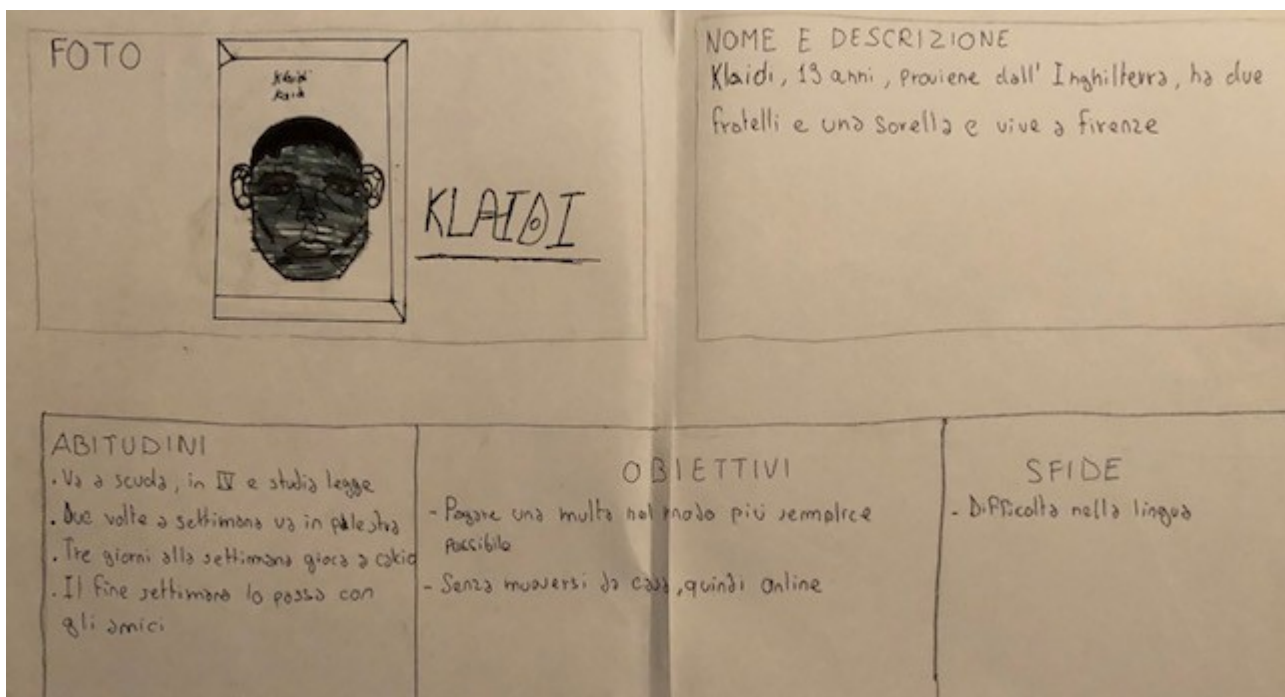 FOTO
Klaidi
KLAIDI
NOME E DESCRIZIONE
Klaidi, 19 anni, proviene dall' Inghilterra, ha due
fratelli e una sorella e vive a firenze
ABITUDINI
. Va a scuola, in IV e studia legge
. Due volte a settimana va in palestra
. Tre giorni alla settimana gioca a calcio
. Il fine settimana lo passa con
gli amici
OBIETTIVI
- Pagare una multa nel modo più semplice
possibile
- Senza muoversi da casa, quindi online
SFIDE
- Difficolta nella lingua